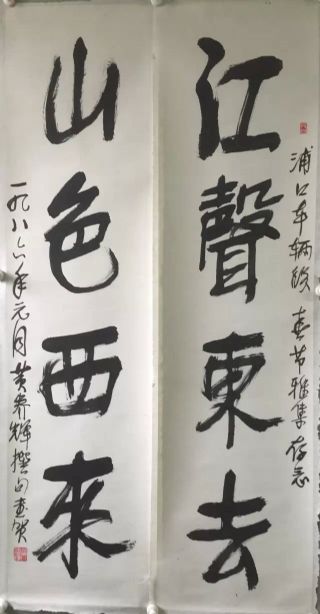 江聲東去
浦口车辆段 春节雅集存念
山色西來
一九八六年元月黄养辉撰句并贺